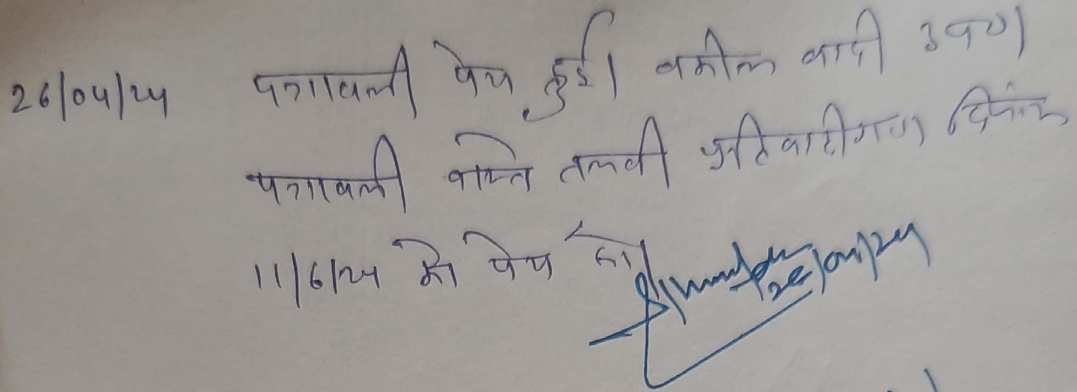 26/04/24 पत्रावली पेश हुई। वकील वादी उप०।
पत्रावली वास्ते तलवी प्रतिवादीगण दिनांक
11/6/24 को पेश हो।
26/04/24